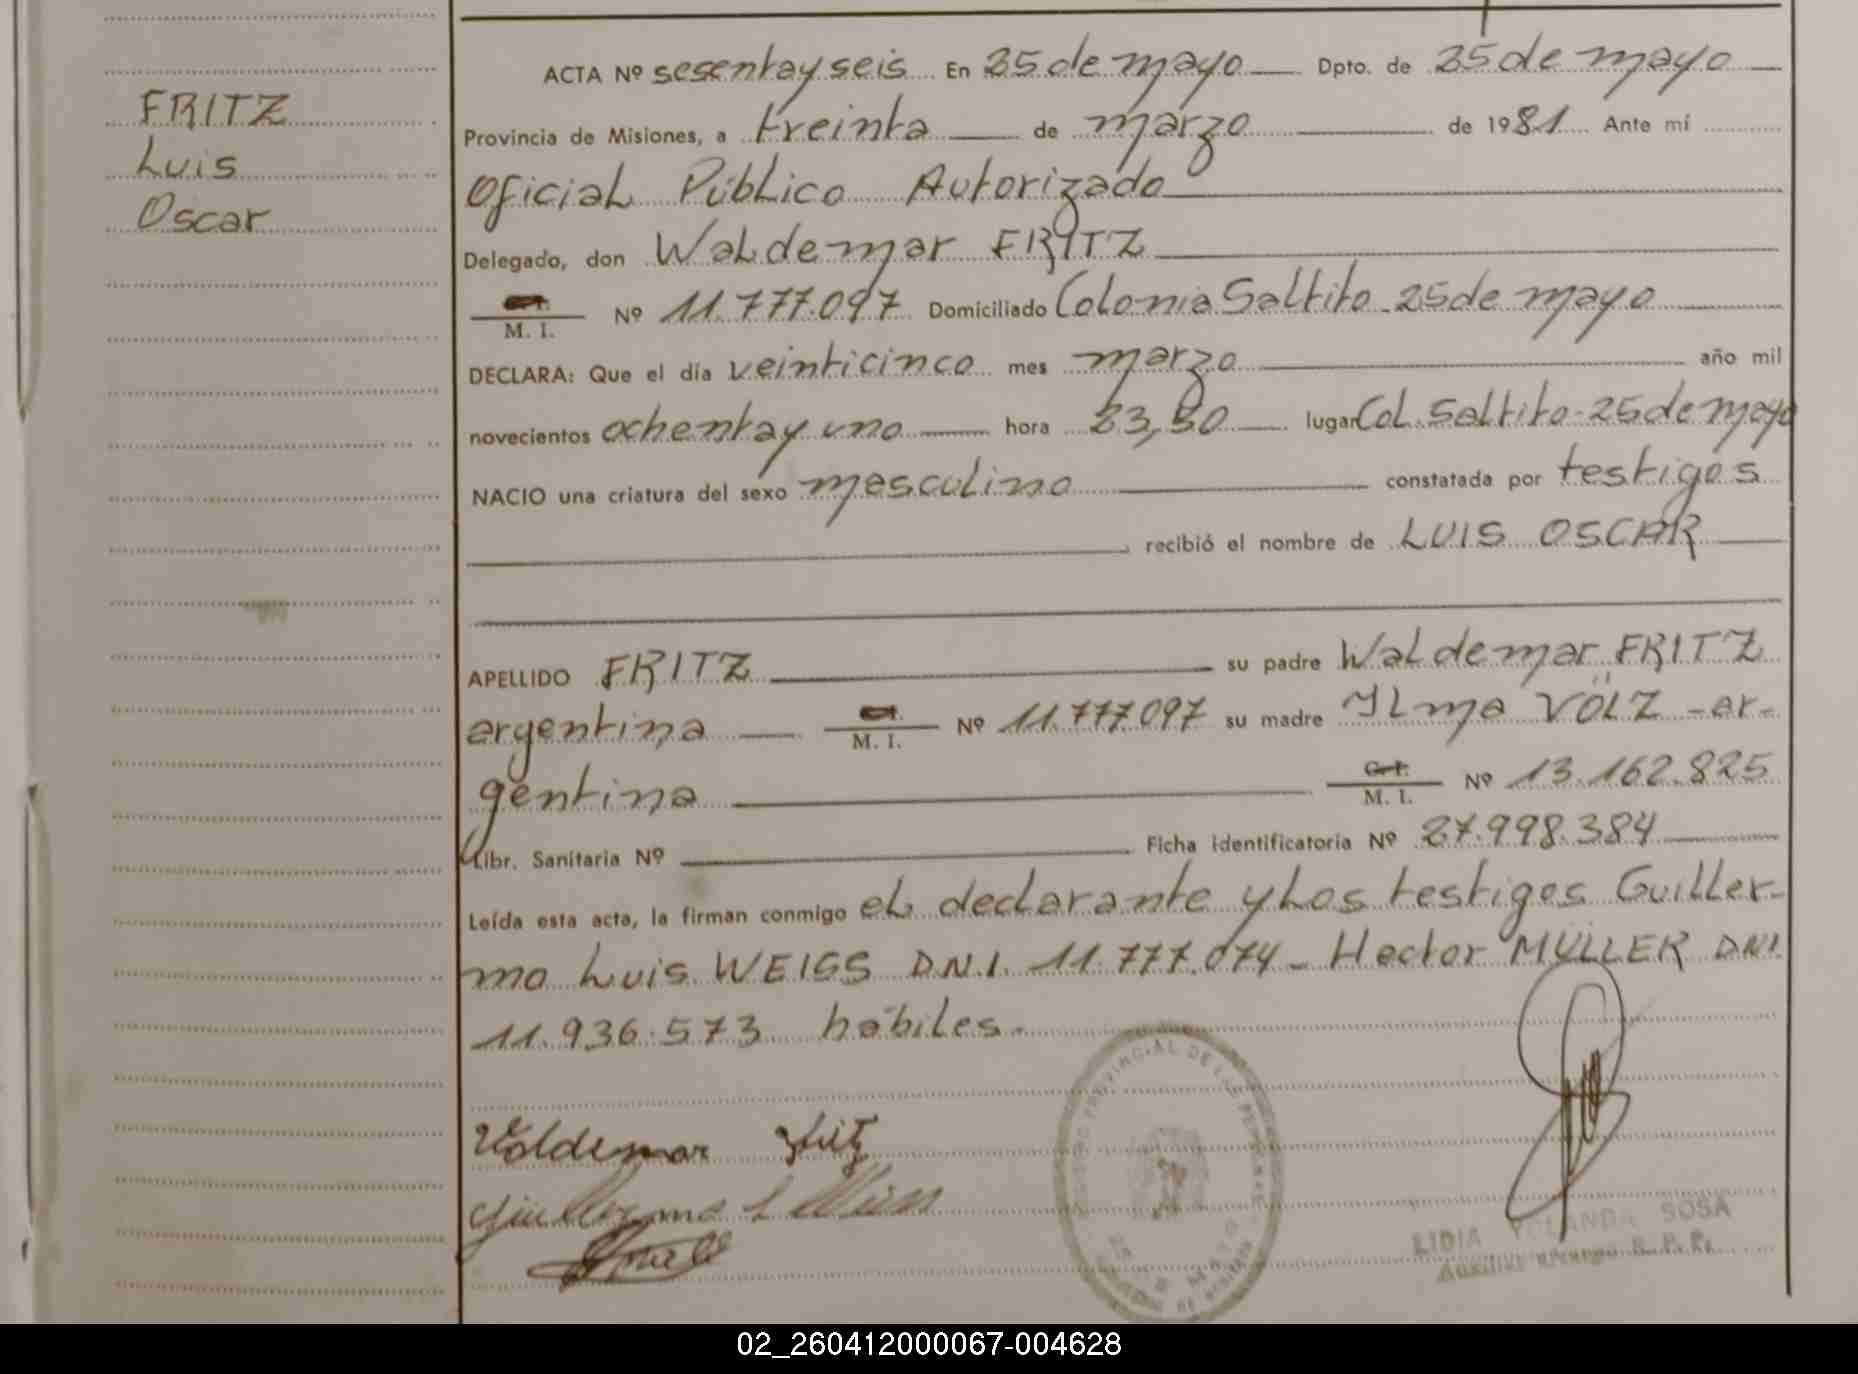 FRITZ
Luis
Oscar
ACTA Nº sesenta y seis En 25 de mayo Dpto. de 25 de mayo
Provincia de Misiones, a treinta de marzo de 1981 Ante mí
Oficial Público Autorizado
Delegado, don Waldemar FRITZ
C.I. M. I. Nº 11.777.097 Domiciliado Colonia Saltito - 25 de mayo
DECLARA: Que el día veinticinco mes marzo año mil
novecientos ochenta y uno hora 23,30 lugar Col. Saltito - 25 de mayo
NACIO una criatura del sexo masculino constatada por testigos
recibió el nombre de LUIS OSCAR
APELLIDO FRITZ su padre Waldemar FRITZ
argentina C.I. M. I. Nº 11.777.097 su madre Ilma VÖLZ - ar-
gentina C.I. M. I. Nº 13.162.825
Libr. Sanitaria Nº Ficha identificatoria Nº 27.998.384
Leída esta acta, la firman conmigo el declarante y los testigos Guiller-
mo Luis WEISS D.N.I. 11.777.074 - Hector MULLER DNI.
11.936.573 hábiles.
Valdemar Fritz
Guillermo L Weiss
REGISTRO PROVINCIAL DE LAS PERSONAS
25 DE MAYO
LIDIA YOLANDA SOSA
02_260412000067-004628